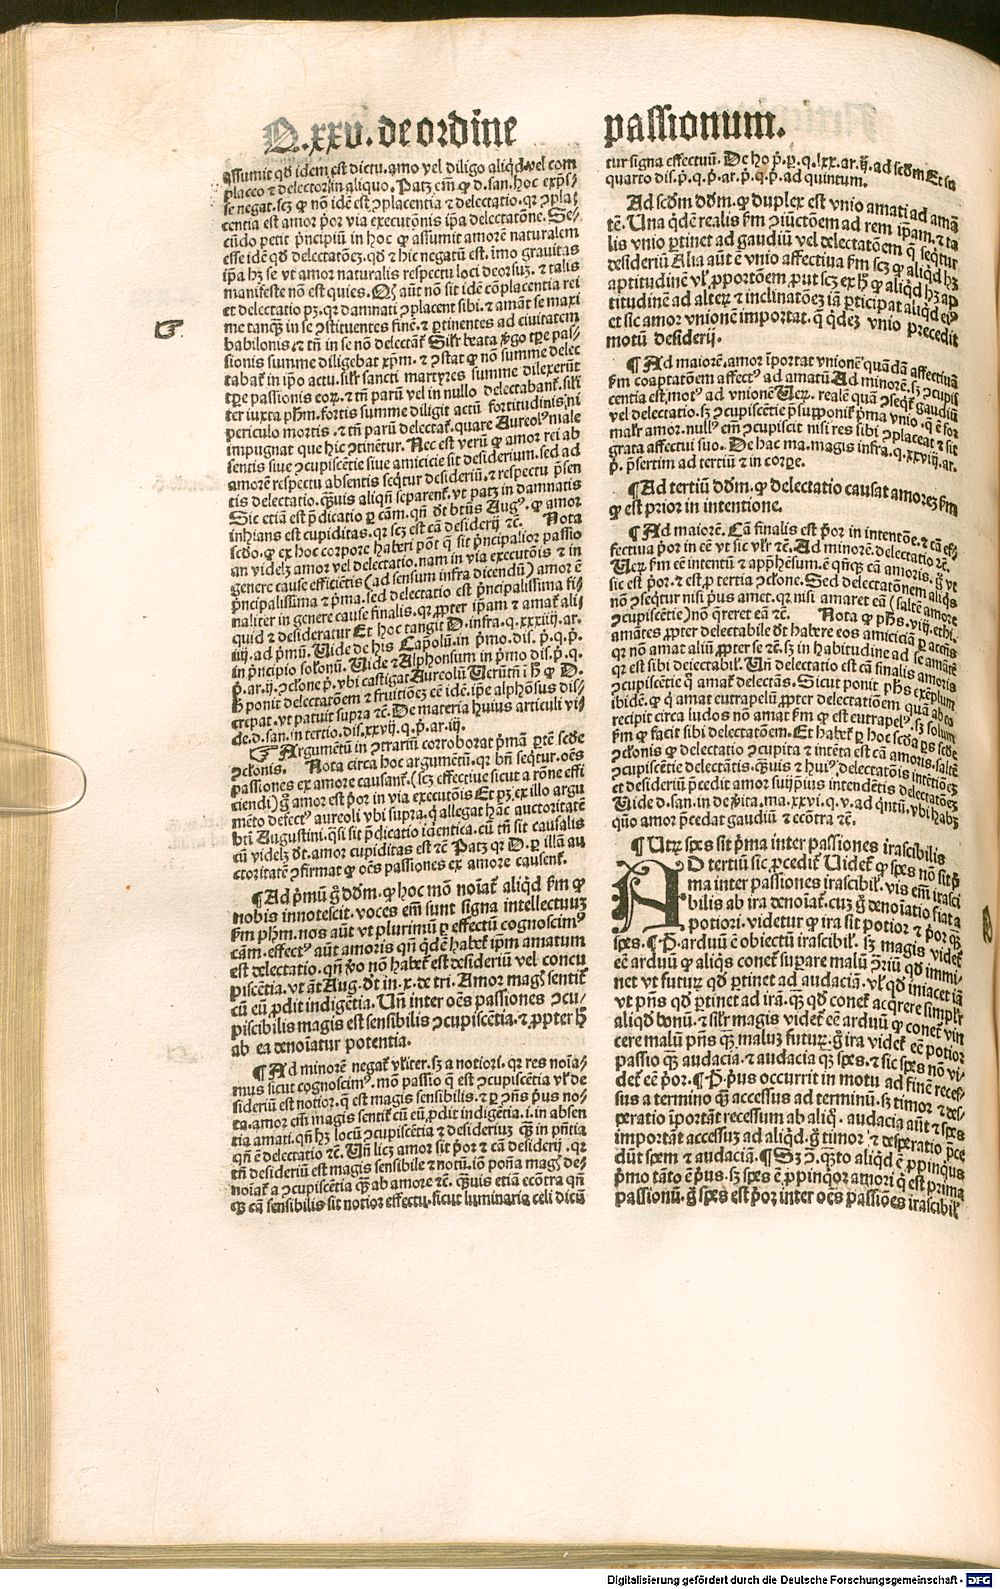 Q.xxv. de ordine passionum.
assumit qđ idem est dictu. amo vel diligo aliqđ. vel com
placeo ⁊ delector in aliquo. Patꝫ em̄ ꝙ d. san. hoc exp̄s-
se negat. scꝫ ꝙ nō idē est ꝯplacentia ⁊ delectatio. qꝛ ꝯpla-
centia est amor p̄or via executōnis ip̄a delectatōne. Se-
cūdo petit p̄ncipiū in hoc ꝙ assumit amorē naturalem
esse idē qđ delectatōeꝫ. qđ ⁊ hic negatū est. īmo grauitas
ip̄a hꝫ se vt amor naturalis respectu loci deorsuꝫ. ⁊ talis
manifeste nō est quies. Qđ aūt nō sit idē cōplacentia rei
et delectatio pꝫ. qꝛ damnati ꝯplacent sibi. ⁊ amāt se maxi
me tanqꝫ in se ꝯstituentes finē. ⁊ ꝑtinentes ad ciuitatem
babilonis. ⁊ tn̄ in se nō delectāt. Silr̄ beata v̓go tꝑe pas-
sionis summe diligebat xp̄m. ⁊ ꝯstat ꝙ nō summe delec
tabat̄ in ip̄o actu. silr̄ sancti martyres summe dilexerūt
tꝑe passionis eoꝝ. ⁊ tn̄ parū vel in nullo delectabant̄. silr̄
ter iuxta ph̄m. fortis summe diligit actū fortitudinis ni
periculo mortis. ⁊ tn̄ parū delectat̄. quare Aureolꝰ male
impugnat que hic ꝯtinētur. Nec est verū ꝙ amor rei ab
sentis siue ꝯcupiscētie siue amicicie sit desiderium. sed ad
amorē respectu absentis seqͥtur desideriū. ⁊ respectu p̄sen
tis delectatio. qͣuis aliqn̄ separent̄. vt patꝫ in damnatis
Sic etiā est p̄dicatio ꝑ cām. qn̄ dt̄ btūs Augꝰ. ꝙ amor
inhians est cupiditas. qꝛ scꝫ est cā desiderij ⁊c̄. Nota
scdo. ꝙ ex hoc corpore haberi pōt q̄ sit p̄ncipalior passio
an videlꝫ amor vel delectatio. nam in via executōis ⁊ in
genere cause efficiētis (ad sensum infra dicendū) amor ē
p̄ncipalissima ⁊ p̄ma. sed delectatio est p̄ncipalissima fi-
naliter in genere cause finalis. qꝛ ꝓpter ip̄am ⁊ amat̄ ali
quid ⁊ desideratur Et hoc tangit D. infra. q. xxxiiij. ar.
iiij. ad p̄mū. Uide de his Capolū. in p̄mo. dis. p̄. q. p̄.
in p̄ncipio solonū. Uide ⁊ Alphonsum in p̄mo dis. p̄. q.
p̄. ar. ij. ꝯclone p̄. vbi castigat Aureolū Uerūtn̄ ī hͦ ꝙ D.
hͦ ponit delectatōem ⁊ fruitiōeꝫ eē idē. ip̄e alphōsus dis-
crepat. vt patuit supra ⁊c̄. De materia huius articuli vi-
de. d. san. in tertio. dis. xxvij. q. p̄. ar. iij.
☞ Argumētū in ꝯtrariū corroborat p̄mā ꝑtē scdē
ꝯclonis. Nota circa hoc argumētū. qꝛ bn̄ seqͥtur. oēs
passiones ex amore causant̄. (scꝫ effectiue sicut a rōne effi
ciendi) g̊ amor est p̄or in via executōis Et pꝫ. ex illo argu
mēto defectꝰ aureoli vbi supra. q̓ allegat hāc auctoritatē
bt̄i Augustini. qͣsi sit p̄dicatio idētica. cū tn̄ sit causalis
cū videlꝫ dt̄. amor cupiditas est ⁊c̄ Patꝫ qꝛ D. ꝑ illā au
ctoritatē ꝯfirmat ꝙ oēs passiones ex amore causent̄.
¶ Ad p̄mū g̊ ddm. ꝙ hoc mō noīat̄ aliqd̄ ẜm ꝙ
nobis innotescit. voces em̄ sunt signa intellectuuꝫ
ẜm ph̄m. nos aūt vt plurimū ꝑ effectū cognoscimꝰ
cām. effectꝰ aūt amoris qn̄ qͥdē habet̄ ip̄m amatum
est delectatio. qn̄ v̊o nō habet̄ est desideriū vel concu
piscētia. vt āt Aug. dt̄ in. x. de tri. Amor magꝰ sentit̄
cū eū ꝓdit indigētia. Un̄ inter oēs passiones ꝯcu-
piscibilis magis est sensibilis ꝯcupiscētia. ⁊ ꝓpter hͦ
ab ea denoīatur potentia.
¶ Ad minorē negat̄ vlīter. sꝫ a notiori. qꝛ res noīa-
mus sicut cognoscimꝰ. mō passio q̄ est ꝯcupiscētia vl̓ de
sideriū est notior. q̄ est magis sensibilis. ⁊ ꝑ ꝯn̄s p̄us no-
ta. amor em̄ magis sentit̄ cū eū ꝓdit indigētia. i. in absen
tia amati. qn̄ hꝫ locū ꝯcupiscētia ⁊ desideriuꝫ qͣꝫ in p̄ntia
qn̄ ē delectatio ⁊c̄. Un̄ licꝫ amor sit p̄or ⁊ cā desiderij. qꝛ
tn̄ desideriū est magis sensibile ⁊ notū. iō potīa magꝰ de-
noīat̄ a ꝯcupiscētia qͣꝫ ab amore ⁊c̄. qͣuis etiā ecōtra qn̄
qꝫ cā sensibilis sit notior effectu. sicut luminaria celi dicū
tur signa effectuū. De hoͦ p̄. ꝑ. q. lxx. ar. ij. ad scdm Et in
quarto dis. p̄. q. p̄. ar. p̄. q. p̄. ad quintum.
Ad scdm ddm. ꝙ duplex est vnio amati ad amā
tē. Una qͥdē realis ẜm ꝯiūctōem ad rem ip̄am. ⁊ ta
lis vnio ꝑtinet ad gaudiū vel delectatōem q̄ seqͥtur
desideriū Alia aūt ē vnio affectiua ẜm scꝫ ꝙ aliqd̄ hꝫ
aptitudinē vl̓ ꝓportōem ꝓut scꝫ ex hͦ ꝙ aliqd̄ hꝫ ap
titudinē ad alteꝝ ⁊ inclinatōeꝫ iā ꝑticipat aliqd̄ eiꝰ
et sic amor vnionē importat. q̄ qͥdeꝫ vnio precedit
motū desiderij.
¶ Ad maiorē. amor īportat vnionē quādā affectiuā
ẜm coaptatōem affectꝰ ad amatū Ad minorē. sꝫ ꝯcupis
centia est motꝰ ad vnionē Ueꝝ. realē quā ꝯseqͥt̄ gaudiū
vel delectatio. sꝫ ꝯcupiscētie p̄supponit̄ p̄ma vnio. q̄ ē for
malr̄ amor. nullꝰ em̄ ꝯcupiscit nisi res sibi ꝯplaceat ⁊ sit
grata affectui suo. De hac ma. magis infra. q. xxviij. ar.
p̄. p̄sertim ad tertiū ⁊ in corꝑe.
¶ Ad tertiū ddm. ꝙ delectatio causat amoreꝫ ẜm
ꝙ est prior in intentione.
¶ Ad maiorē. Cā finalis est p̄or in intentōe. ⁊ cā ef-
fectiua p̄or in eē vt sic vlr̄ ⁊c̄. Ad minorē. delectatio ⁊c̄.
Ueꝝ ẜm eē intentū ⁊ app̄hēsum. ē qn̄qꝫ cā amoris. g̊ vt
sic est p̄or. ⁊ est ꝓ tertia ꝯclone. Sed delectatōnem aliqͥs
nō ꝯseqͥtur nisi p̄us amet. qꝛ nisi amaret eā (saltē amore
ꝯcupiscētie) nō q̄reret eā ⁊c̄. Nota ꝙ ph̄s. viij. ethi.
amātes ꝓpter delectabile dt̄ habere eos amiciciā ꝑ accn̄s
qꝛ nō amat aliū ꝓpter se ⁊c̄. sꝫ in habitudine ad se amātē
qꝛ est sibi delectabil̓. Un̄ delectatio est cā finalis amoris
ꝯcupiscētie q̓ amat̄ delectās. Sicut ponit ph̄s exēplum
ibidē. ꝙ q̓ amat eutrapelū ꝓpter delectatiōem quā ab eo
recipit circa ludos nō amat ẜm ꝙ est eutrapelꝰ. sꝫ solum
ẜm ꝙ facit sibi delectatōem. Et habet̄ ꝑ hoc scda ꝑs scdē
ꝯclonis ꝙ delectatio ꝯcupita ⁊ intēta est cā amoris. saltē
ꝯcupiscētie delectātis. qͣuis ⁊ huiꝰ delectatōis intētiōeꝫ
et desideriū p̄cedit amor suijpsius intendētis delectatōeꝫ
Uide d. san. in de v̓ita. ma. xxvi. q. v. ad qn̄tū. vbi habꝫ
quō amor p̄cedat gaudiū ⁊ ecōtra ⁊c̄.
¶ Utꝝ spes sit p̄ma inter passiones irascibilis
AD tertiū sic ꝓcedit̄ Uidet̄ ꝙ spes nō sit p̄
ma inter passiones irascibil̓. vis em̄ irasci
bilis ab ira denoīat̄. cuꝫ g̊ denoīatio fiat a
potiori. videtur ꝙ ira sit potior ⁊ p̄or qͣꝫ
spes. ¶ P. arduū ē obiectū irascibil̓. sꝫ magis videt̄
eē arduū ꝙ aliqͥs conet̄ suꝑare malū ꝯriū qđ immi-
net vt futuꝝ qđ ꝑtinet ad audaciā. vl̓ qđ iniacet iā
vt pn̄s qđ ꝑtinet ad irā. qͣꝫ qđ conet̄ acqͥrere simplr̄
aliqđ bonū. ⁊ silr̄ magis videt̄ eē arduū ꝙ conet̄ vin
cere malū pn̄s qͣꝫ maluꝫ futuꝝ. g̊ ira videt̄ eē potior
passio qͣꝫ audacia. ⁊ audacia qͣꝫ spes. ⁊ sic spes nō vi-
det̄ eē p̄or. ¶ P. p̄us occurrit in motu ad finē reces-
sus a termino qͣꝫ accessus ad terminū. sꝫ timor ⁊ des-
ꝑatio īportāt recessum ab aliq̊. audacia aūt ⁊ spes
importāt accessuꝫ ad aliqd̄. g̊ timor ⁊ desperatio p̄ce
dūt spem ⁊ audaciā. ¶ Sꝫ ꝯ. qͣto aliqd̄ ē ꝓpinqͥus
p̄mo tāto ē p̄us. sꝫ spes ē ꝓpinqͥor amori q̓ est prima
passionū. g̊ spes est p̄or inter oēs passiōes irascibil̓
Digitalisierung gefördert durch die Deutsche Forschungsgemeinschaft - DFG